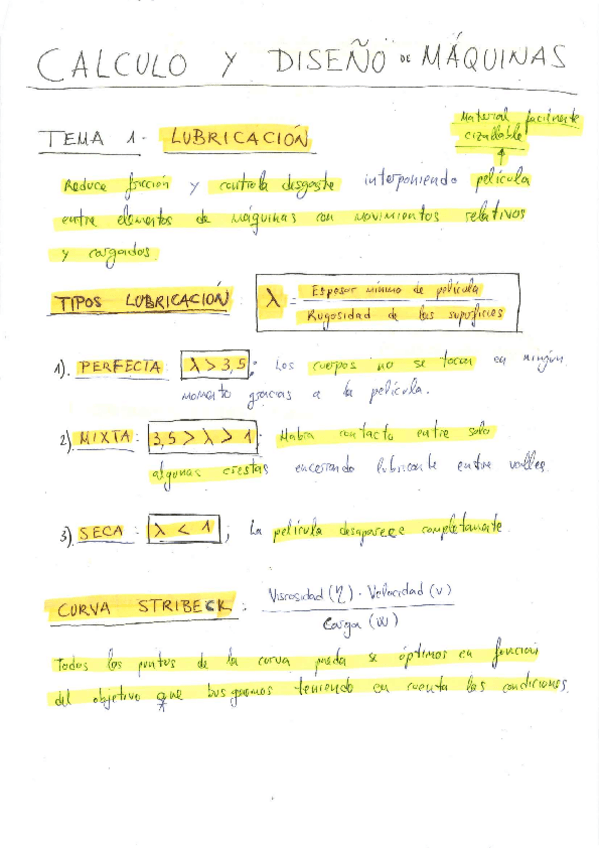 CALCULO Y DISEÑO DE MÁQUINAS
Material facilmente
cizallable
TEMA 1. LUBRICACIÓN
Reduce fricción y controla desgaste interponiendo película
entre elementos de máquinas con movimientos relativos
y cargados.
TIPOS LUBRICACIÓN: λ = Espesor mínimo de película
Rugosidad de las superficies
1). PERFECTA λ > 3,5; Los cuerpos no se tocan en ningún
momento gracias a la película.
2). MIXTA: 3,5 > λ > 1: Habrá contacto entre solo
algunas crestas encerrando lubricante entre valles.
3). SECA: λ < 1; La película desaparece completamente.
CURVA STRIBECK: Viscosidad (η) · Velocidad (v)
Carga (W)
Todos los puntos de la curva pueda se óptimos en función
del objetivo que busquemos teniendo en cuenta las condiciones.